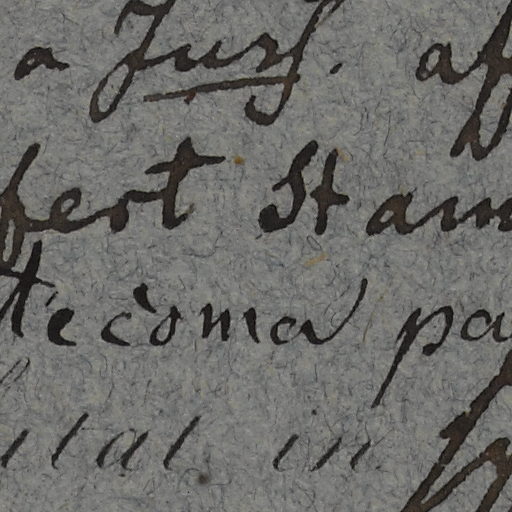 a Juss. af
fert Stam
Tecoma pa
ital in